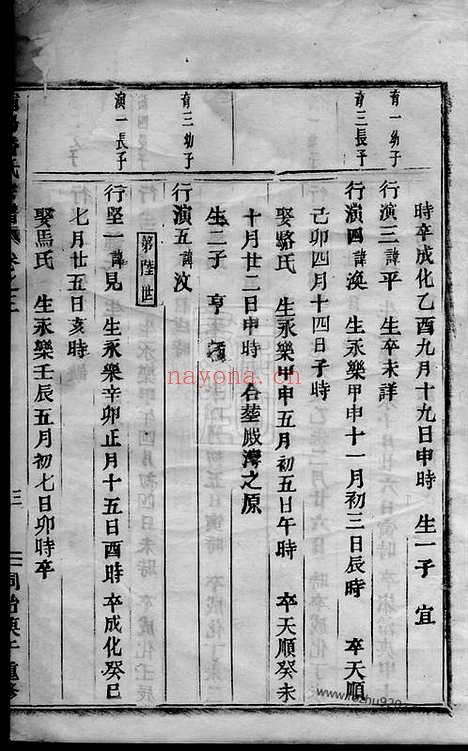 時卒成化乙酉九月十九日申時 生一子 宜
育一幼子
行演三諱平 生卒未詳
育三長子
行演四諱渙 生永樂甲申十一月初三日辰時 卒天順
己卯四月十四日子時
娶駱氏 生永樂甲申五月初五日午時 卒天順癸未
十月廿二日申時 合塟殿灣之原
生二子 亨
育三幼子
行演五諱汶
第陸世
演一長子
行堅一諱見 生永樂辛卯正月十五日酉時 卒成化癸巳
七月廿五日亥時
娶馬氏 生永樂壬辰五月初七日卯時卒
卷之三
三
同治庚午重修
nayona.cn